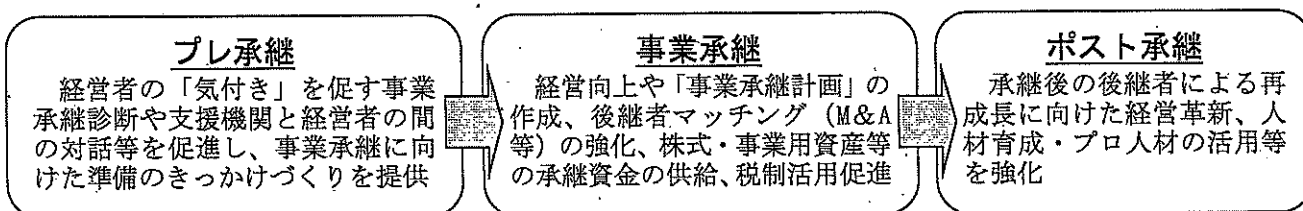 プレ承継
経営者の「気付き」を促す事業
承継診断や支援機関と経営者の間
の対話等を促進し、事業承継に向
けた準備のきっかけづくりを提供
事業承継
経営向上や「事業承継計画」の
作成、後継者マッチング（M&A
等）の強化、株式・事業用資産等
の承継資金の供給、税制活用促進
ポスト承継
承継後の後継者による再
成長に向けた経営革新、人
材育成・プロ人材の活用等
を強化